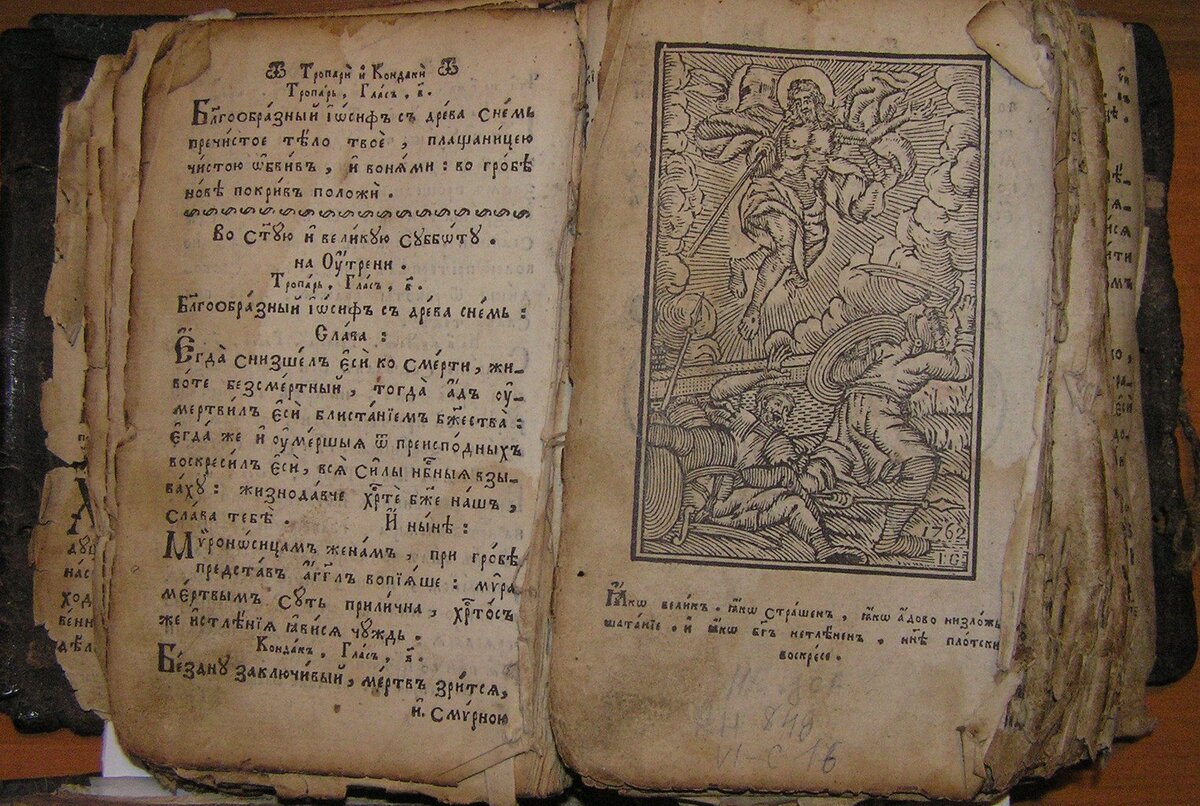 Тропарѝ и҆ Кондакѝ
Тропа́рь, Гла́съ, в҃.
Бл҃гообра́зный і҆ѡ́сифъ съ дре́ва сне́мь
пречи́стое тѣ́ло твоѐ, плащани́цею
чи́стою ѡ҆бви́въ, и҆ воня́ми: во гро́бѣ
но́вѣ покри́въ положѝ.
Во ст҃у́ю и҆ вели́кую суббѡ́ту.
на Оу҆́трени.
Тропа́рь, Гла́съ, в҃.
Бл҃гообра́зный і҆ѡ́сифъ съ дре́ва сне́мь:
Сла́ва:
Е҆гда̀ снизше́лъ є҆сѝ ко сме́рти, жи-
во́те безсме́ртный, тогда̀ а҆́дъ оу҆-
мертви́лъ є҆сѝ блиста́нїемъ бж҃ества̀:
є҆гда́ же и҆ оу҆ме́ршыя ѿ преиспо́дныхъ
воскреси́лъ є҆сѝ, всѧ̀ си́лы нб҃ныя взы-
ва́ху: жизнода́вче хр҃тѐ бж҃е на́шъ,
сла́ва тебѣ̀. И҆ ны́нѣ:
Мѷронѡ́сицамъ жена́мъ, при гро́бѣ
предста́въ а҆́гг҃лъ вопїѧ́ше: мѵ̑ра
ме́ртвымъ су́ть прили́чна, хр҃то́съ
же и҆стлѣ́нїя ꙗ҆ви́ся чу́ждь.
Конда́къ, Гла́съ, в҃.
Бе́здну заключи́вый, ме́ртвъ зри́тся,
и҆ сми́рною
1762
I G
Ꙗ҆́кѡ вели́къ. ꙗ҆́кѡ стра́шенъ, ꙗ҆́кѡ а҆́дово низло́жь
шата́нїе. и҆ ꙗ҆́кѡ бг҃ъ нетлѣ́ненъ, нн҃ѣ пло́тски
воскре́се.
VI-C 16